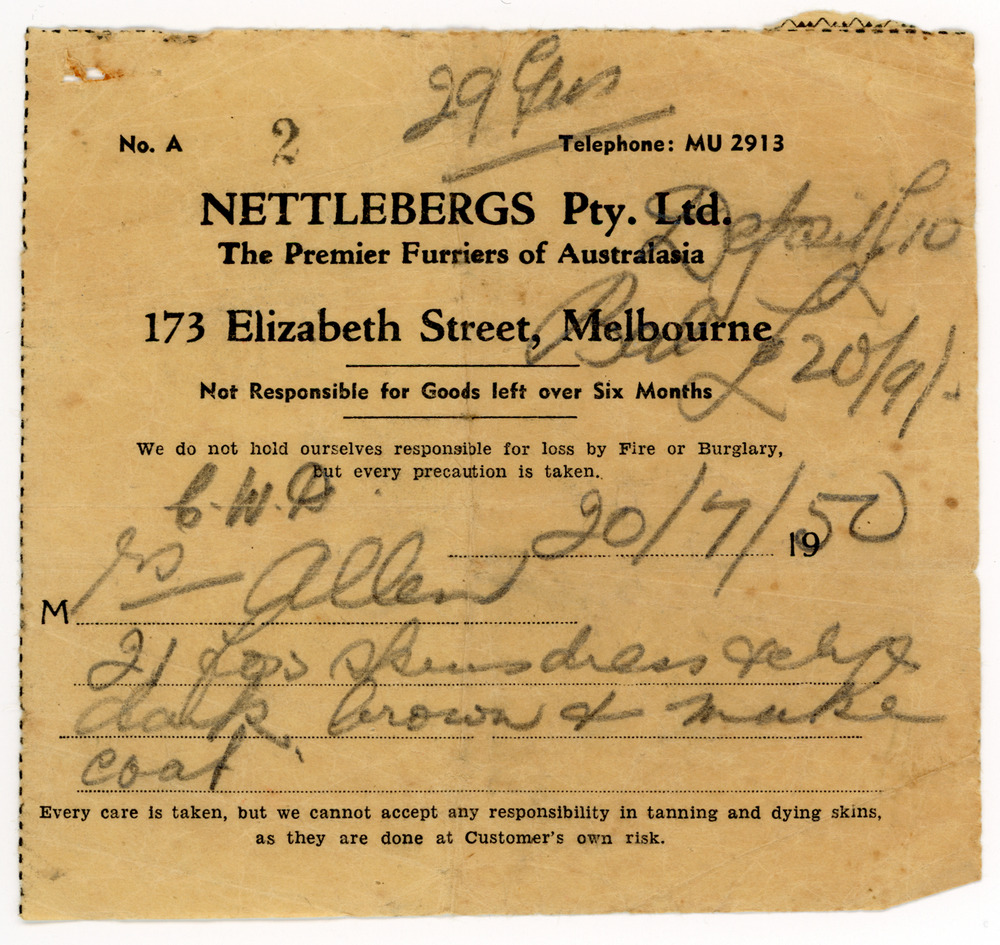 29 Gns
No. A 2 Telephone: MU 2913
NETTLEBERGS Pty. Ltd.
Deposit £10
The Premier Furriers of Australasia
173 Elizabeth Street, Melbourne
Bal £20/9/-
Not Responsible for Goods left over Six Months
We do not hold ourselves responsible for loss by Fire or Burglary,
but every precaution is taken.
C.W.D
20/7/1950
Mrs Allen
21 Fox skins dress & dye
dark brown & make
coat
Every care is taken, but we cannot accept any responsibility in tanning and dying skins,
as they are done at Customer's own risk.